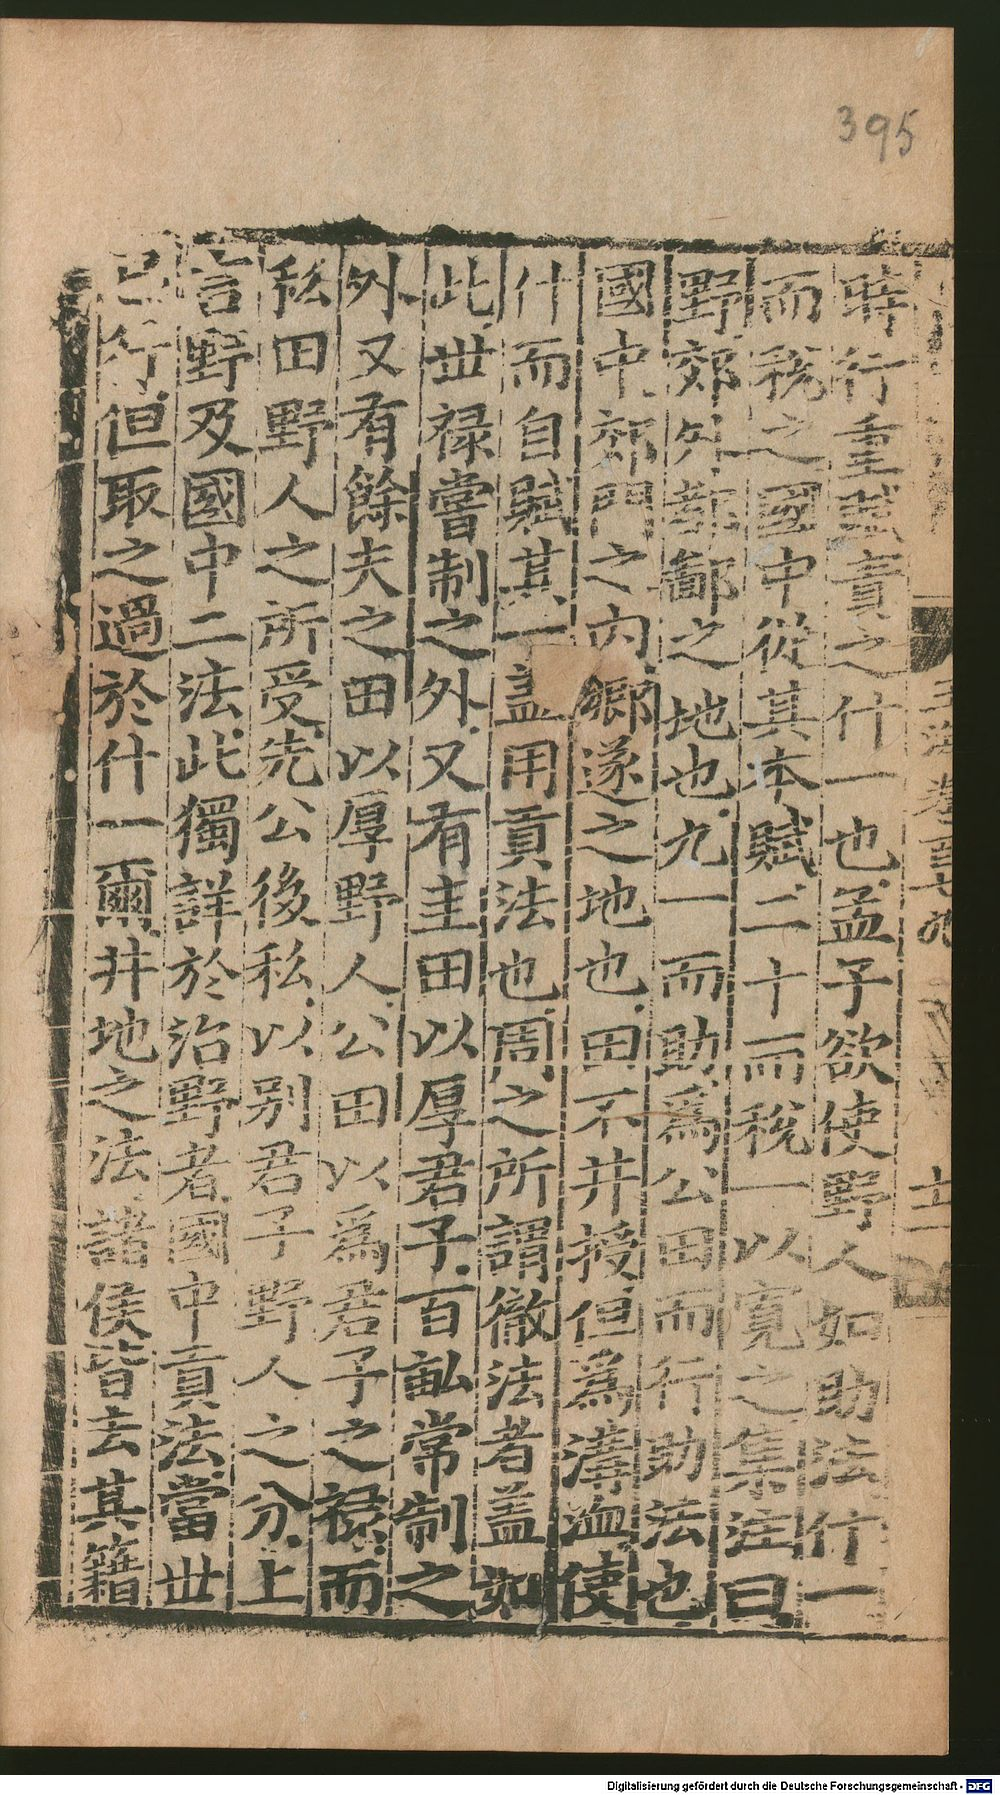 395
時行重賦責之什一也孟子欲使野人如助法什一
而稅之國中從其本賦二十而稅一以寬之集注曰
野郊外都鄙之地也九一而助爲公田而行助法也
國中郊門之內鄉遂之地也田不井授但爲溝洫使
什而自賦其一盖用貢法也周之所謂徹法者盖如
此丗祿嘗制之外又有圭田以厚君子百畝常制之
外又有餘夫之田以厚野人公田以爲君子之祿而
私田野人之所受先公後私以别君子野人之分上
言野及國中二法此獨詳於治野者國中貢法當丗
已行但取之過於什一爾井地之法諸侯皆去其籍
Digitalisierung gefördert durch die Deutsche Forschungsgemeinschaft - DFG